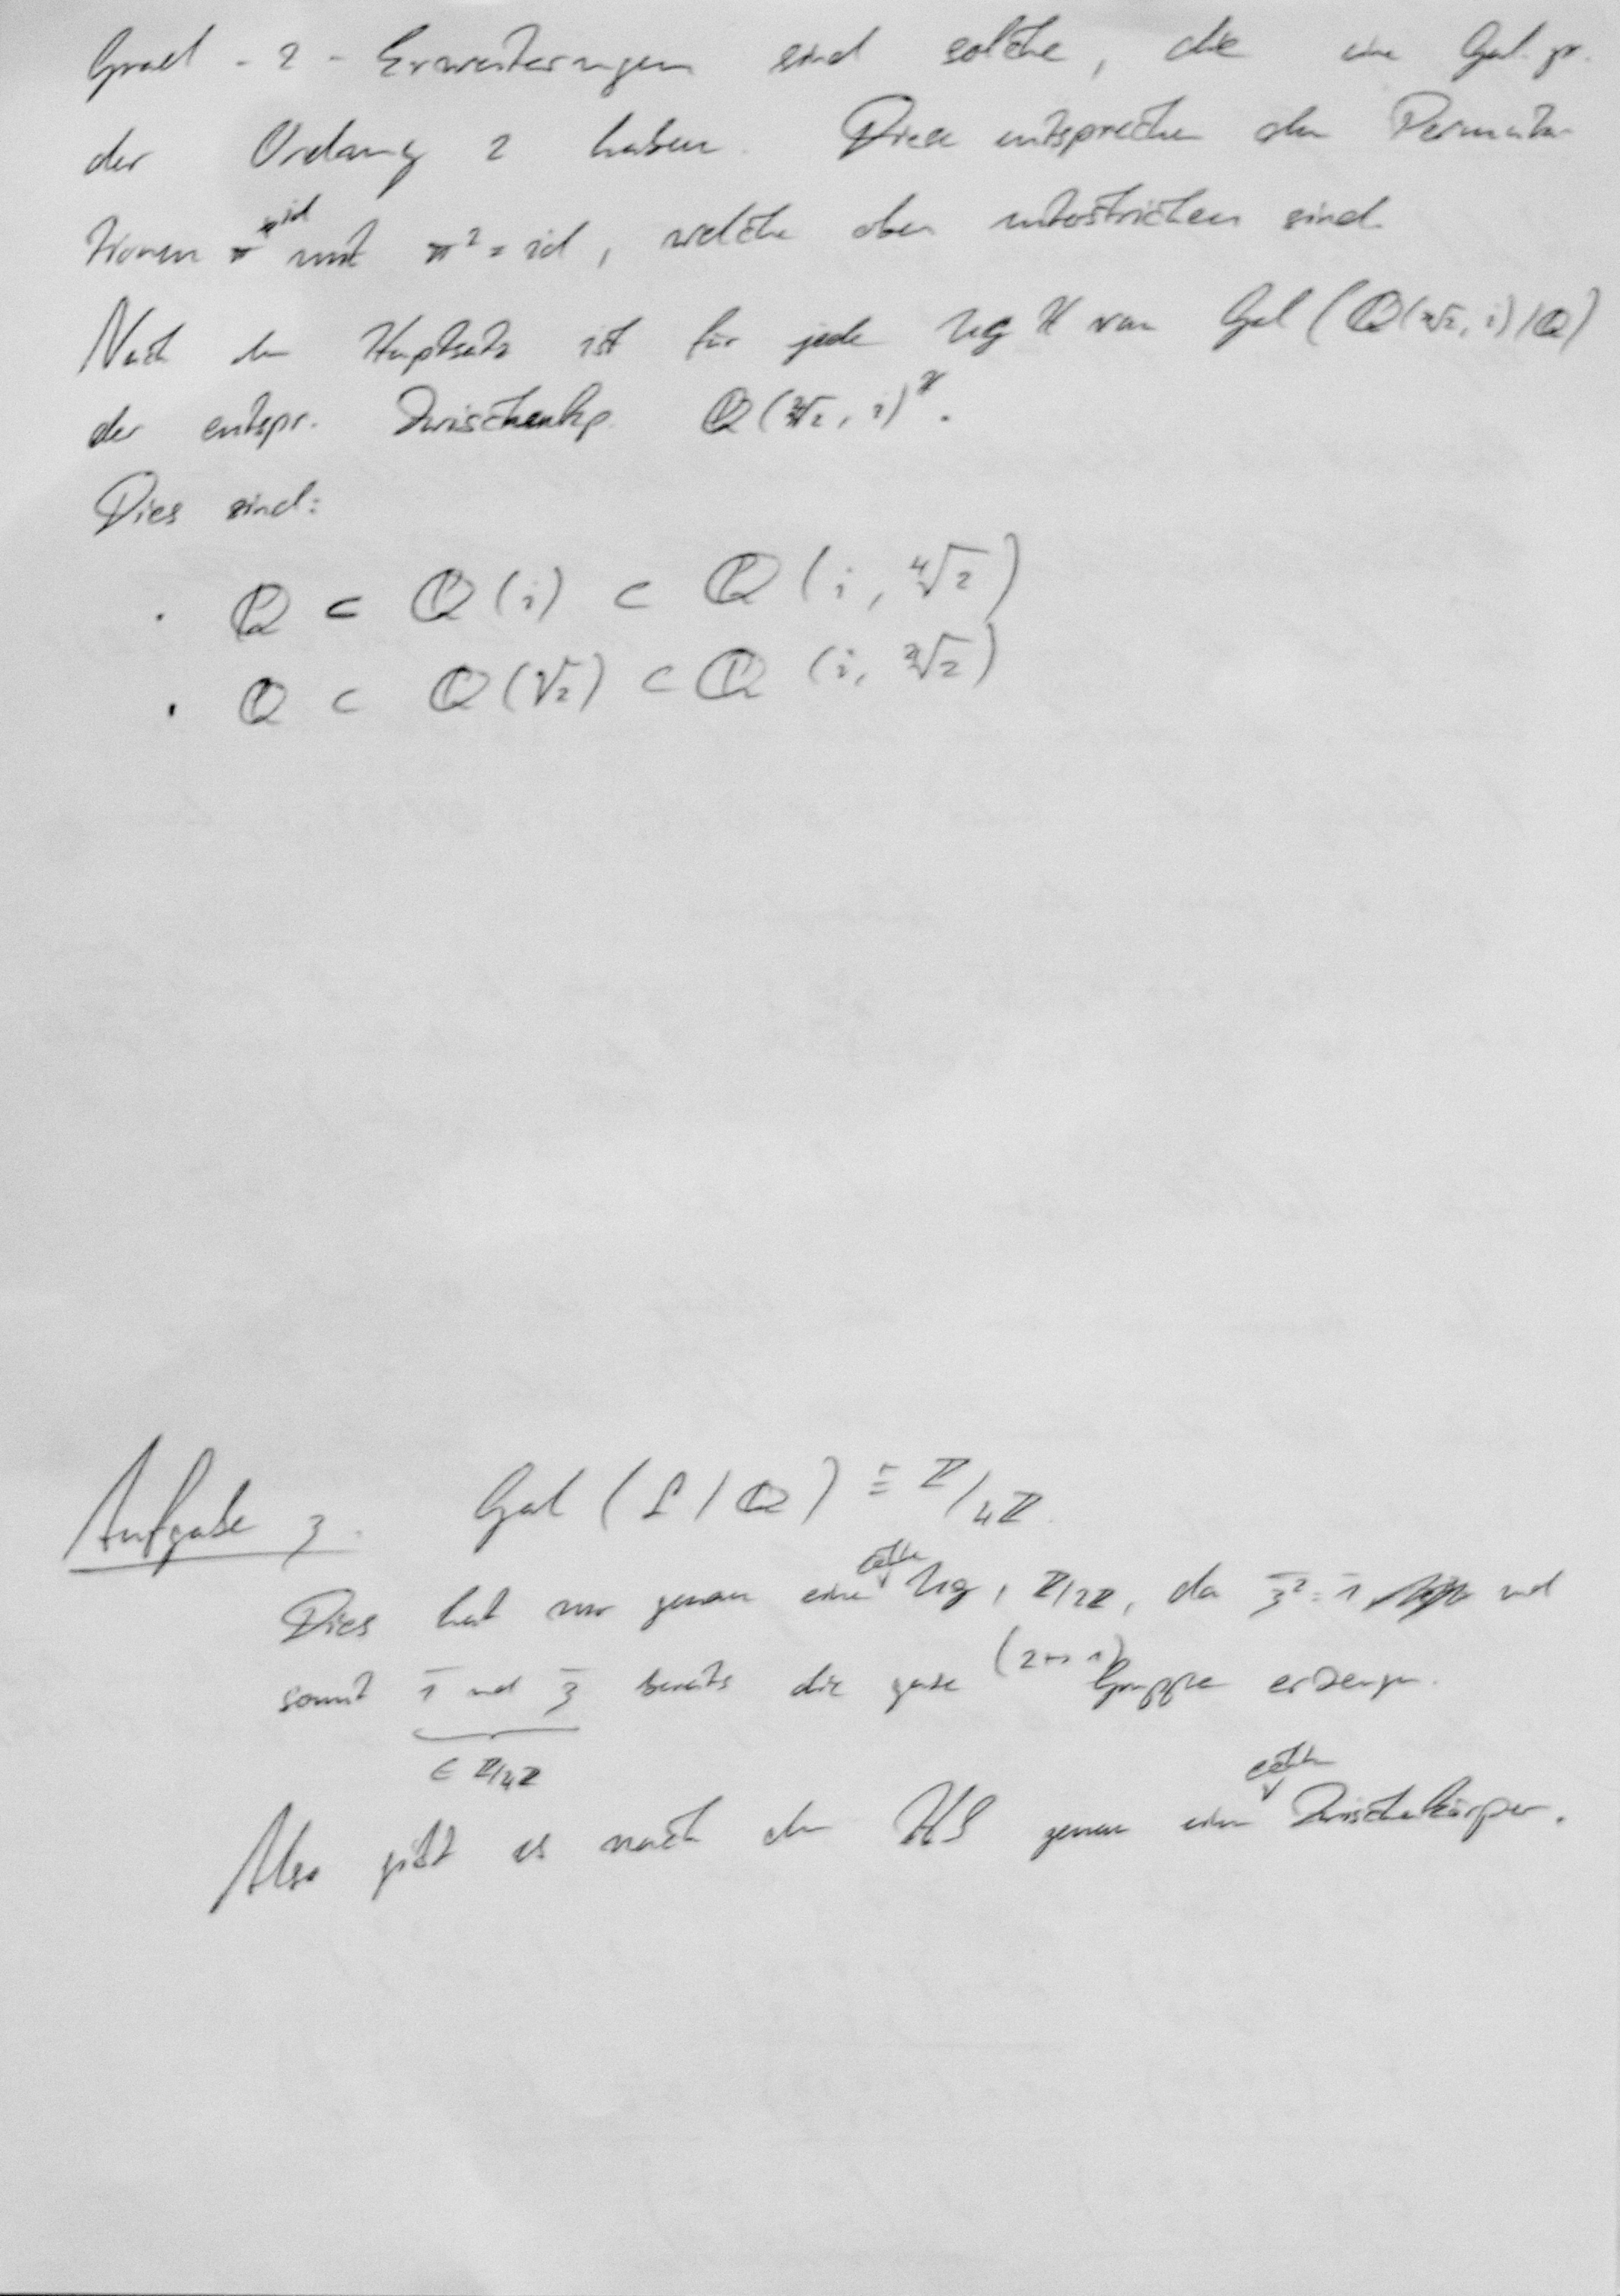 Grad - 2 - Erweiterungen sind solche, die eine Gal. gr.
der Ordnung 2 haben. Diese entsprechen den Permuta-
tionen π ≠ id mit π² = id, welche oben unterstrichen sind.
Nach dem Hauptsatz ist für jede Ug H von Gal (ℚ(∜2, i) / ℚ)
der entspr. Zwischenkp. ℚ(∜2, i)^H.
Dies sind:
· ℚ ⊂ ℚ(i) ⊂ ℚ(i, ∜2)
· ℚ ⊂ ℚ(√2) ⊂ ℚ(i, ∜2)
Aufgabe 3. Gal (L / ℚ) ≅ ℤ/4ℤ.
echte
Dies hat nur genau eine Ug, ℤ/2ℤ, da 3̄² = 1̄ und
(2 ↦ 1)
somit 1̄ und 3̄ bereits die ganze Gruppe erzeugen.
∈ ℤ/4ℤ
echten
Also gibt es nach dem HS genau einen Zwischenkörper.